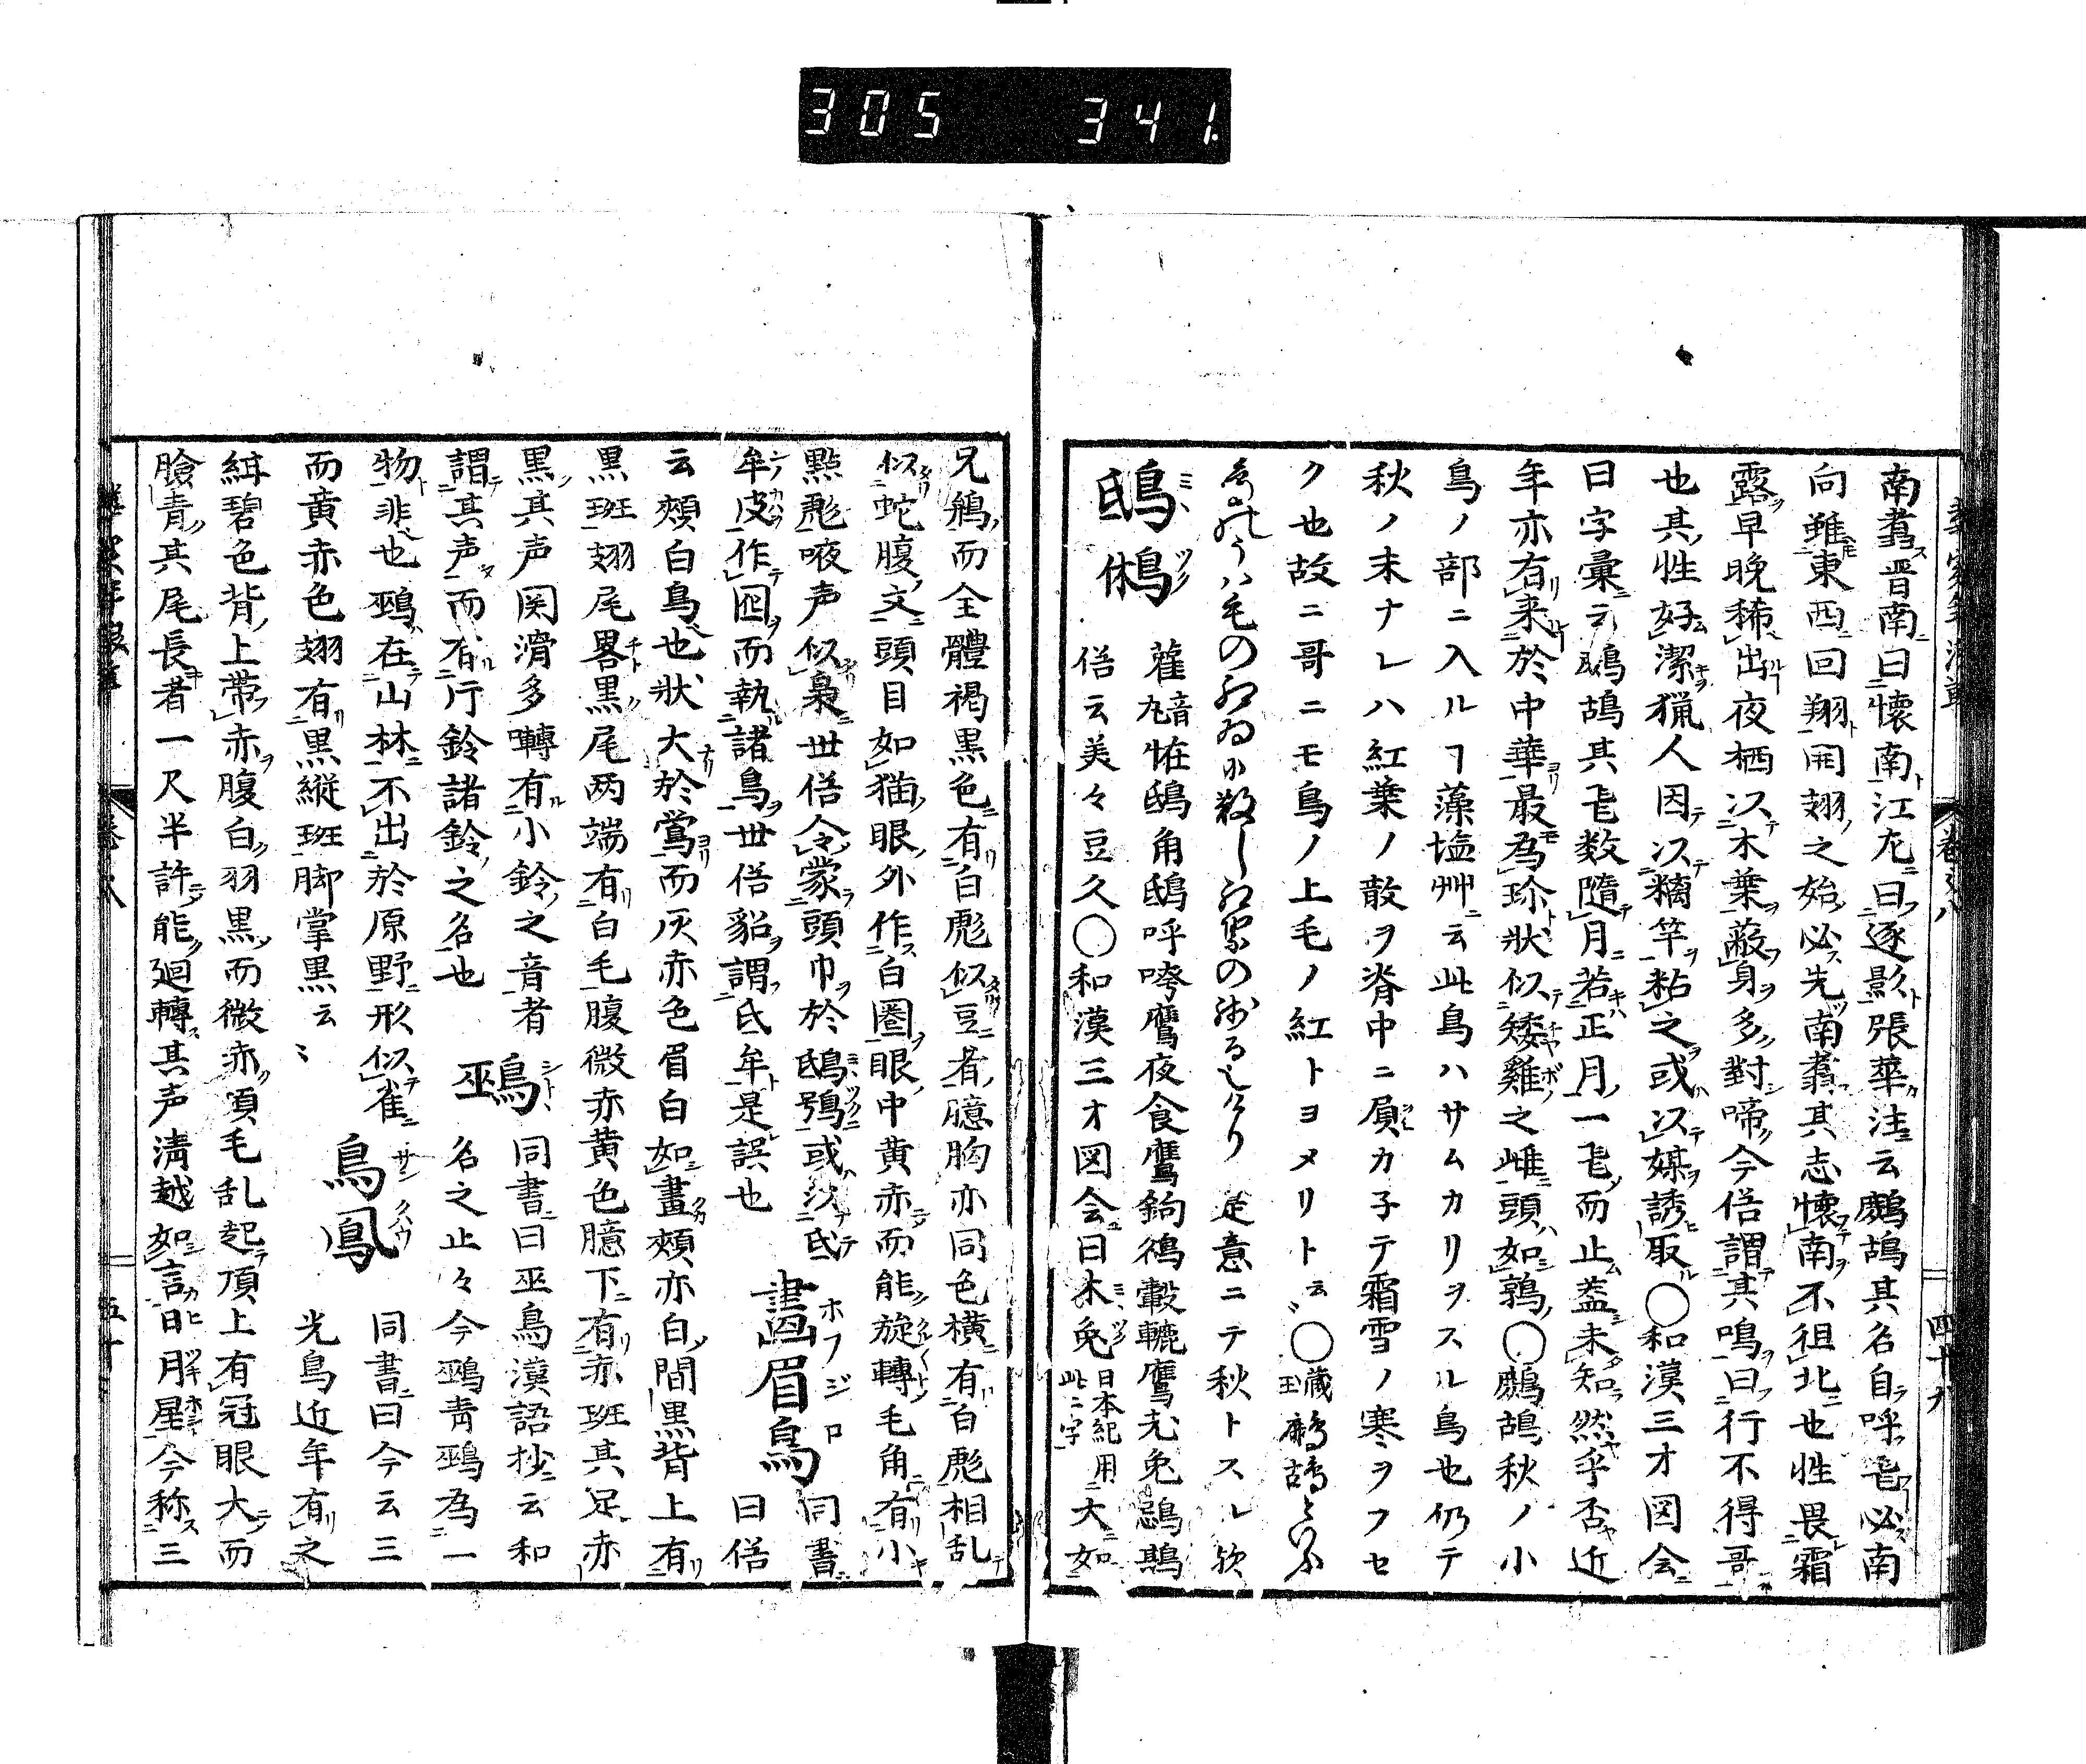 305 341
南翥晋南曰懷南江左曰逐影張華注云鷓鴣其名自呼飛必南
向雖東西回翔開翅之始必先南翥其志懷南不徂北也性畏霜
露早晚稀出夜栖以木葉蔽身多對啼今俗謂其鳴曰行不得哥
也其性好潔猟人因以黐竿粘之或以媒誘取○和漢三才図会
曰字彙云鷓鴣其飛数隨月若正月一飛而止盖未知然乎否近
年亦有来於中華最為珍状似矮雞之雌頭如鶉○鷓鴣秋ノ小
鳥ノ部ニ入ルヿ藻塩艸ニ云此鳥ハサムカリヲスル鳥也仍テ
秋ノ末ナレハ紅葉ノ散ヲ脊中ニ屓カ子テ霜雪ノ寒ヲフセ
ク也故ニ哥ニモ鳥ノ上毛ノ紅トヨメリト云〻○蔵玉鷓鴣といふ
是意ニテ秋トスレ欤
鴟鵂 雚音丸恠鴟角鴟呼咵鷹夜食鷹鉤鵅轂轆鷹老兎鶹鵋
俗云美々豆久○和漢三才図会曰木兔日本紀用此二字大如
兄鷂而全體褐黒色有白彪似豆者臆胸亦同色横有白彪相乱
似蛇腹文頭目如猫眼外作白圏眼中黄赤而能旋轉毛角有小
點彪唳声似梟世俗令蒙頭巾於鴟鵶或以氐
牟皮作囮而執諸鳥世俗貂謂氐牟是誤也 畵眉鳥 同書曰俗
云頰白鳥也状大於鴬而灰赤色眉白如畫頰亦白間黒背上有
黒班翅尾畧黒尾両端有白毛腹微赤黄色臆下有赤班其足赤
黒其声関滑多囀有小鈴之音者 鵐 同書曰巫鳥漢語抄云和
謂其声而有片鈴諸鈴之名也 名之止々今鵐青鵐為一
物非也鵐在山林不出於原野形似雀 鳥鳳 同書曰今云三
而黄赤色翅有黒縦班脚掌黒云〻 光鳥近年有之
紺碧色背上帯赤腹白羽黒而微赤項毛乱起頂上有冠眼大而
臉青其尾長者一尺半許能廻轉其声清越如言日月星今称三